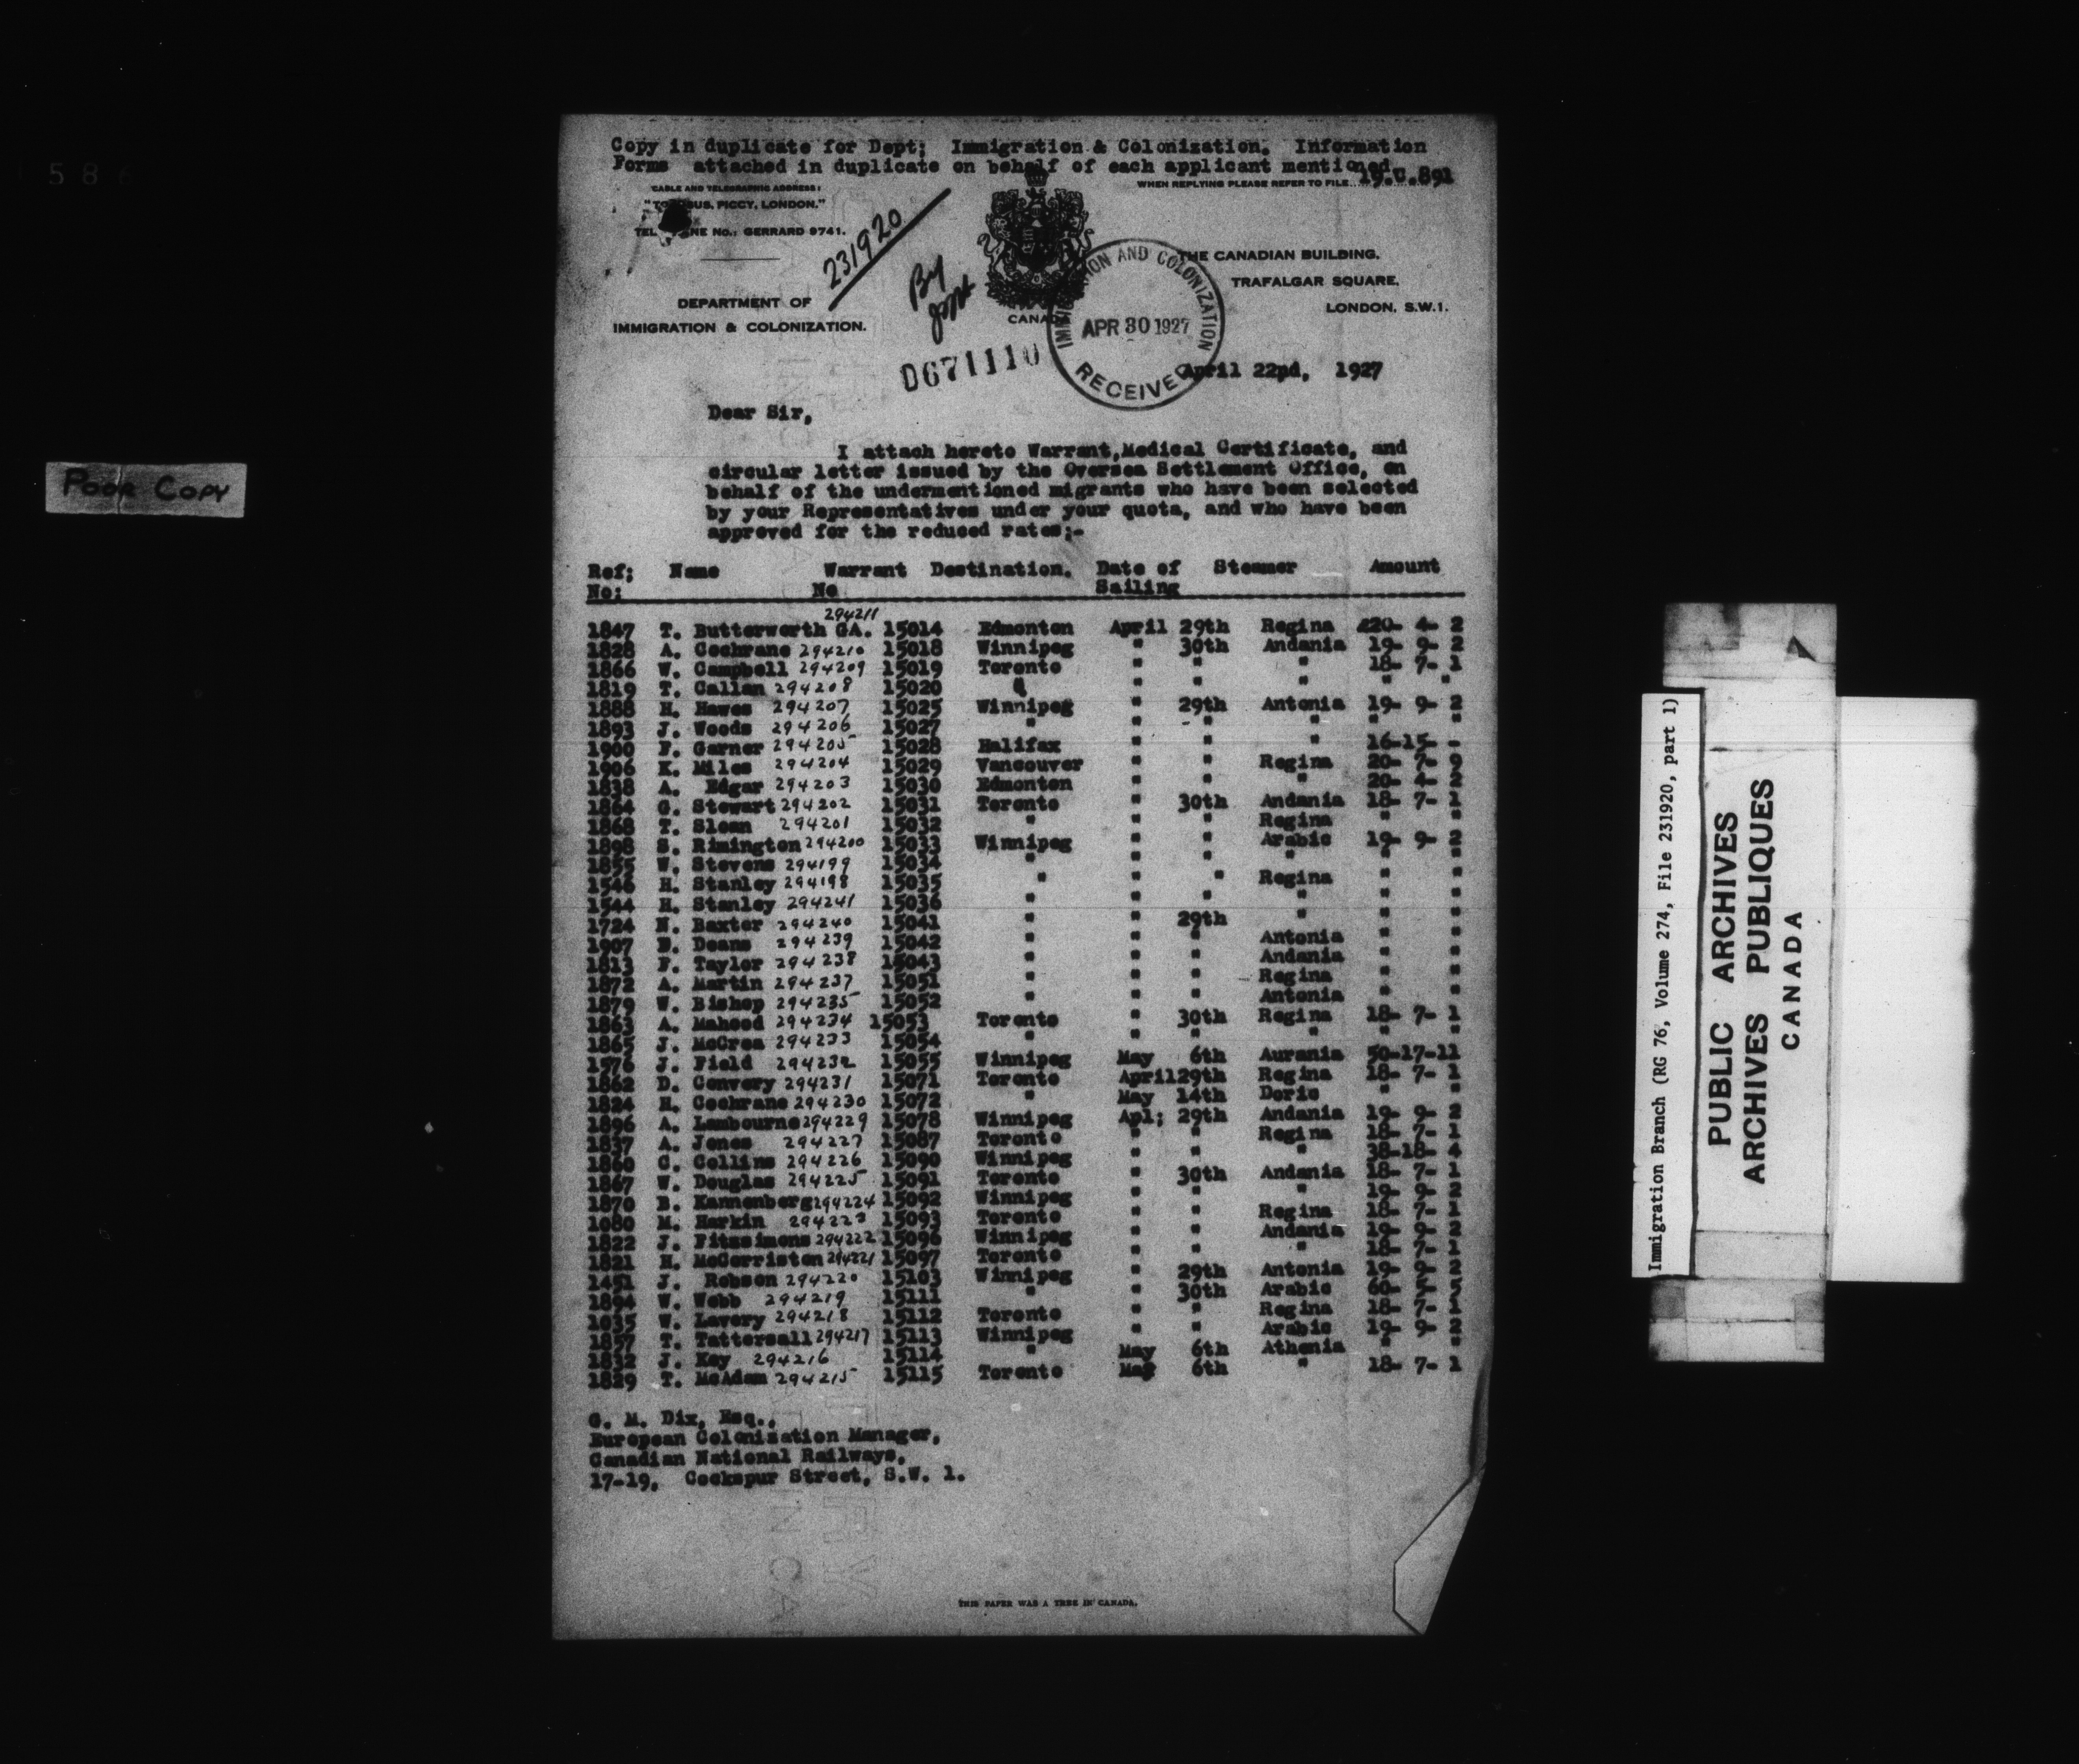 Copy in duplicate for Dept; Immigration & Colonization. Information
Forms attached in duplicate on behalf of each applicant mentioned
CABLE AND TELEGRAPHIC ADDRESS:
WHEN REPLYING PLEASE REFER TO FILE... 19.U.891
PICCY, LONDON."
No.: GERRARD 9741.
231920
By
THE CANADIAN BUILDING,
TRAFALGAR SQUARE,
LONDON, S.W.1.
DEPARTMENT OF
IMMIGRATION & COLONIZATION.
CANADA
IMMIGRATION AND COLONIZATION
APR 30 1927
RECEIVED
D671110
April 22nd, 1927
Dear Sir,
I attach hereto Warrant, Medical Certificate, and
circular letter issued by the Oversea Settlement Office, on
behalf of the undermentioned migrants who have been selected
by your Representatives under your quota, and who have been
approved for the reduced rates;-
Ref; Name Warrant Destination. Date of Steamer Amount
No: No Sailing
294211
1847 T. Butterworth GA. 15014 Edmonton April 29th Regina £20- 4- 2
1828 A. Cochrane 294210 15018 Winnipeg " 30th Andania 19- 9- 2
1866 W. Campbell 294209 15019 Toronto " " " 18- 7- 1
1819 T. Callan 294208 15020 " " " " " "
1888 H. Hawes 294207 15025 Winnipeg " 29th Antonia 19- 9- 2
1893 J. Woods 294206 15027 " " " " " "
1900 F. Garner 294205 15028 Halifax " " " 16-15- -
1906 K. Miles 294204 15029 Vancouver " " Regina 20- 7- 9
1838 A. Edgar 294203 15030 Edmonton " " " 20- 4- 2
1864 G. Stewart 294202 15031 Toronto " 30th Andania 18- 7- 1
1868 T. Sloan 294201 15032 " " " Regina " "
1898 S. Rimington 294200 15033 Winnipeg " " Arabic 19- 9- 2
1855 W. Stevens 294199 15034 " " " " " "
1546 H. Stanley 294198 15035 " " " Regina " "
1544 H. Stanley 294241 15036 " " " " " "
1724 N. Baxter 294240 15041 " " 29th " " "
1907 D. Deans 294239 15042 " " " Antonia " "
1813 F. Taylor 294238 15043 " " " Andania " "
1872 A. Martin 294237 15051 " " " Regina " "
1879 W. Bishop 294235 15052 " " " Antonia " "
1863 A. Mahood 294234 15053 Toronto " 30th Regina 18- 7- 1
1865 J. McCrea 294233 15054 " " " " " "
1576 J. Field 294232 15055 Winnipeg May 6th Aurania 50-17-11
1862 D. Convery 294231 15071 Toronto April 29th Regina 18- 7- 1
1824 H. Cochrane 294230 15072 " May 14th Doric " "
1896 A. Lambourne 294229 15078 Winnipeg Apl; 29th Andania 19- 9- 2
1837 A. Jones 294227 15087 Toronto " " Regina 18- 7- 1
1860 C. Collins 294226 15090 Winnipeg " " " 38-18- 4
1867 W. Douglas 294225 15091 Toronto " 30th Andania 18- 7- 1
1870 B. Kannenberg 294224 15092 Winnipeg " " " 19- 9- 2
1080 M. Harkin 294223 15093 Toronto " " Regina 18- 7- 1
1822 J. Fitzsimons 294222 15096 Winnipeg " " Andania 19- 9- 2
1821 H. McCorriston 294221 15097 Toronto " " " 18- 7- 1
1451 J. Robson 294220 15103 Winnipeg " 29th Antonia 19- 9- 2
1894 W. Webb 294219 15111 " " 30th Arabic 60- 5- 5
1035 W. Lavery 294218 15112 Toronto " " Regina 18- 7- 1
1857 T. Tattersall 294217 15113 Winnipeg " " Arabic 19- 9- 2
1832 J. Kay 294216 15114 " May 6th Athenia " "
1829 T. McAdam 294215 15115 Toronto May 6th " 18- 7- 1
G. M. Dix, Esq.,
European Colonization Manager,
Canadian National Railways,
17-19, Cockspur Street, S.W. 1.
THIS PAPER WAS A TREE IN CANADA.
Poor Copy
Immigration Branch (RG 76, Volume 274, File 231920, part 1)
PUBLIC ARCHIVES
ARCHIVES PUBLIQUES
CANADA